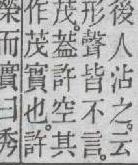 後人沾之。云
形聲皆不言
茂。葢許空其
作茂實也。許
榮而實曰秀